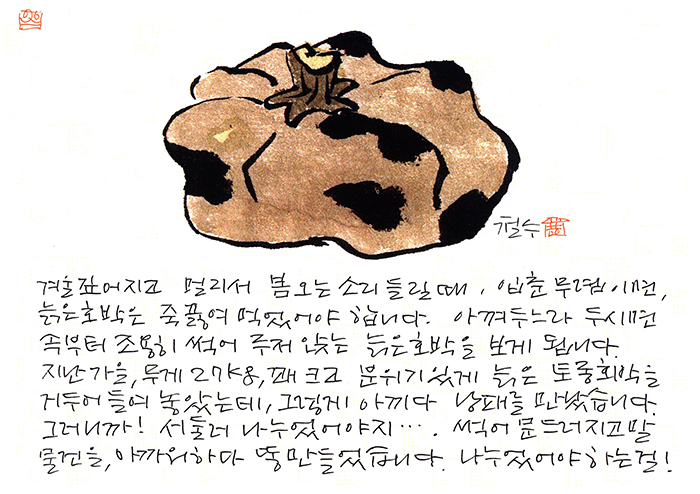 철수
겨울 깊어지고 멀리서 봄 오는 소리 들릴 때, 입춘 무렵이면,
늙은호박은 죽 끓여 먹었어야 합니다. 아껴두느라 두시면
속부터 조용히 썩어 주저 앉는 늙은호박을 보게 됩니다.
지난가을, 무게 2가 용, 꽤 크고 분위기있게 늙은 토종호박을
거두어 들여 놓았는데, 그렇게 아끼다 낭패를 만났습니다.
그러니까! 서둘러 나누었어야지···. 썩어 문드러지고 말
물건을, 아까워하다 똥만들었습니다. 나누었어야 하는걸!